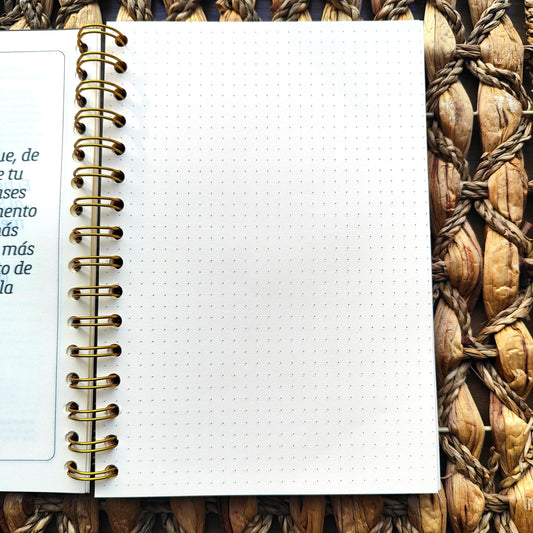 ue, de
e tu
nses
mento
más
más
to de
la